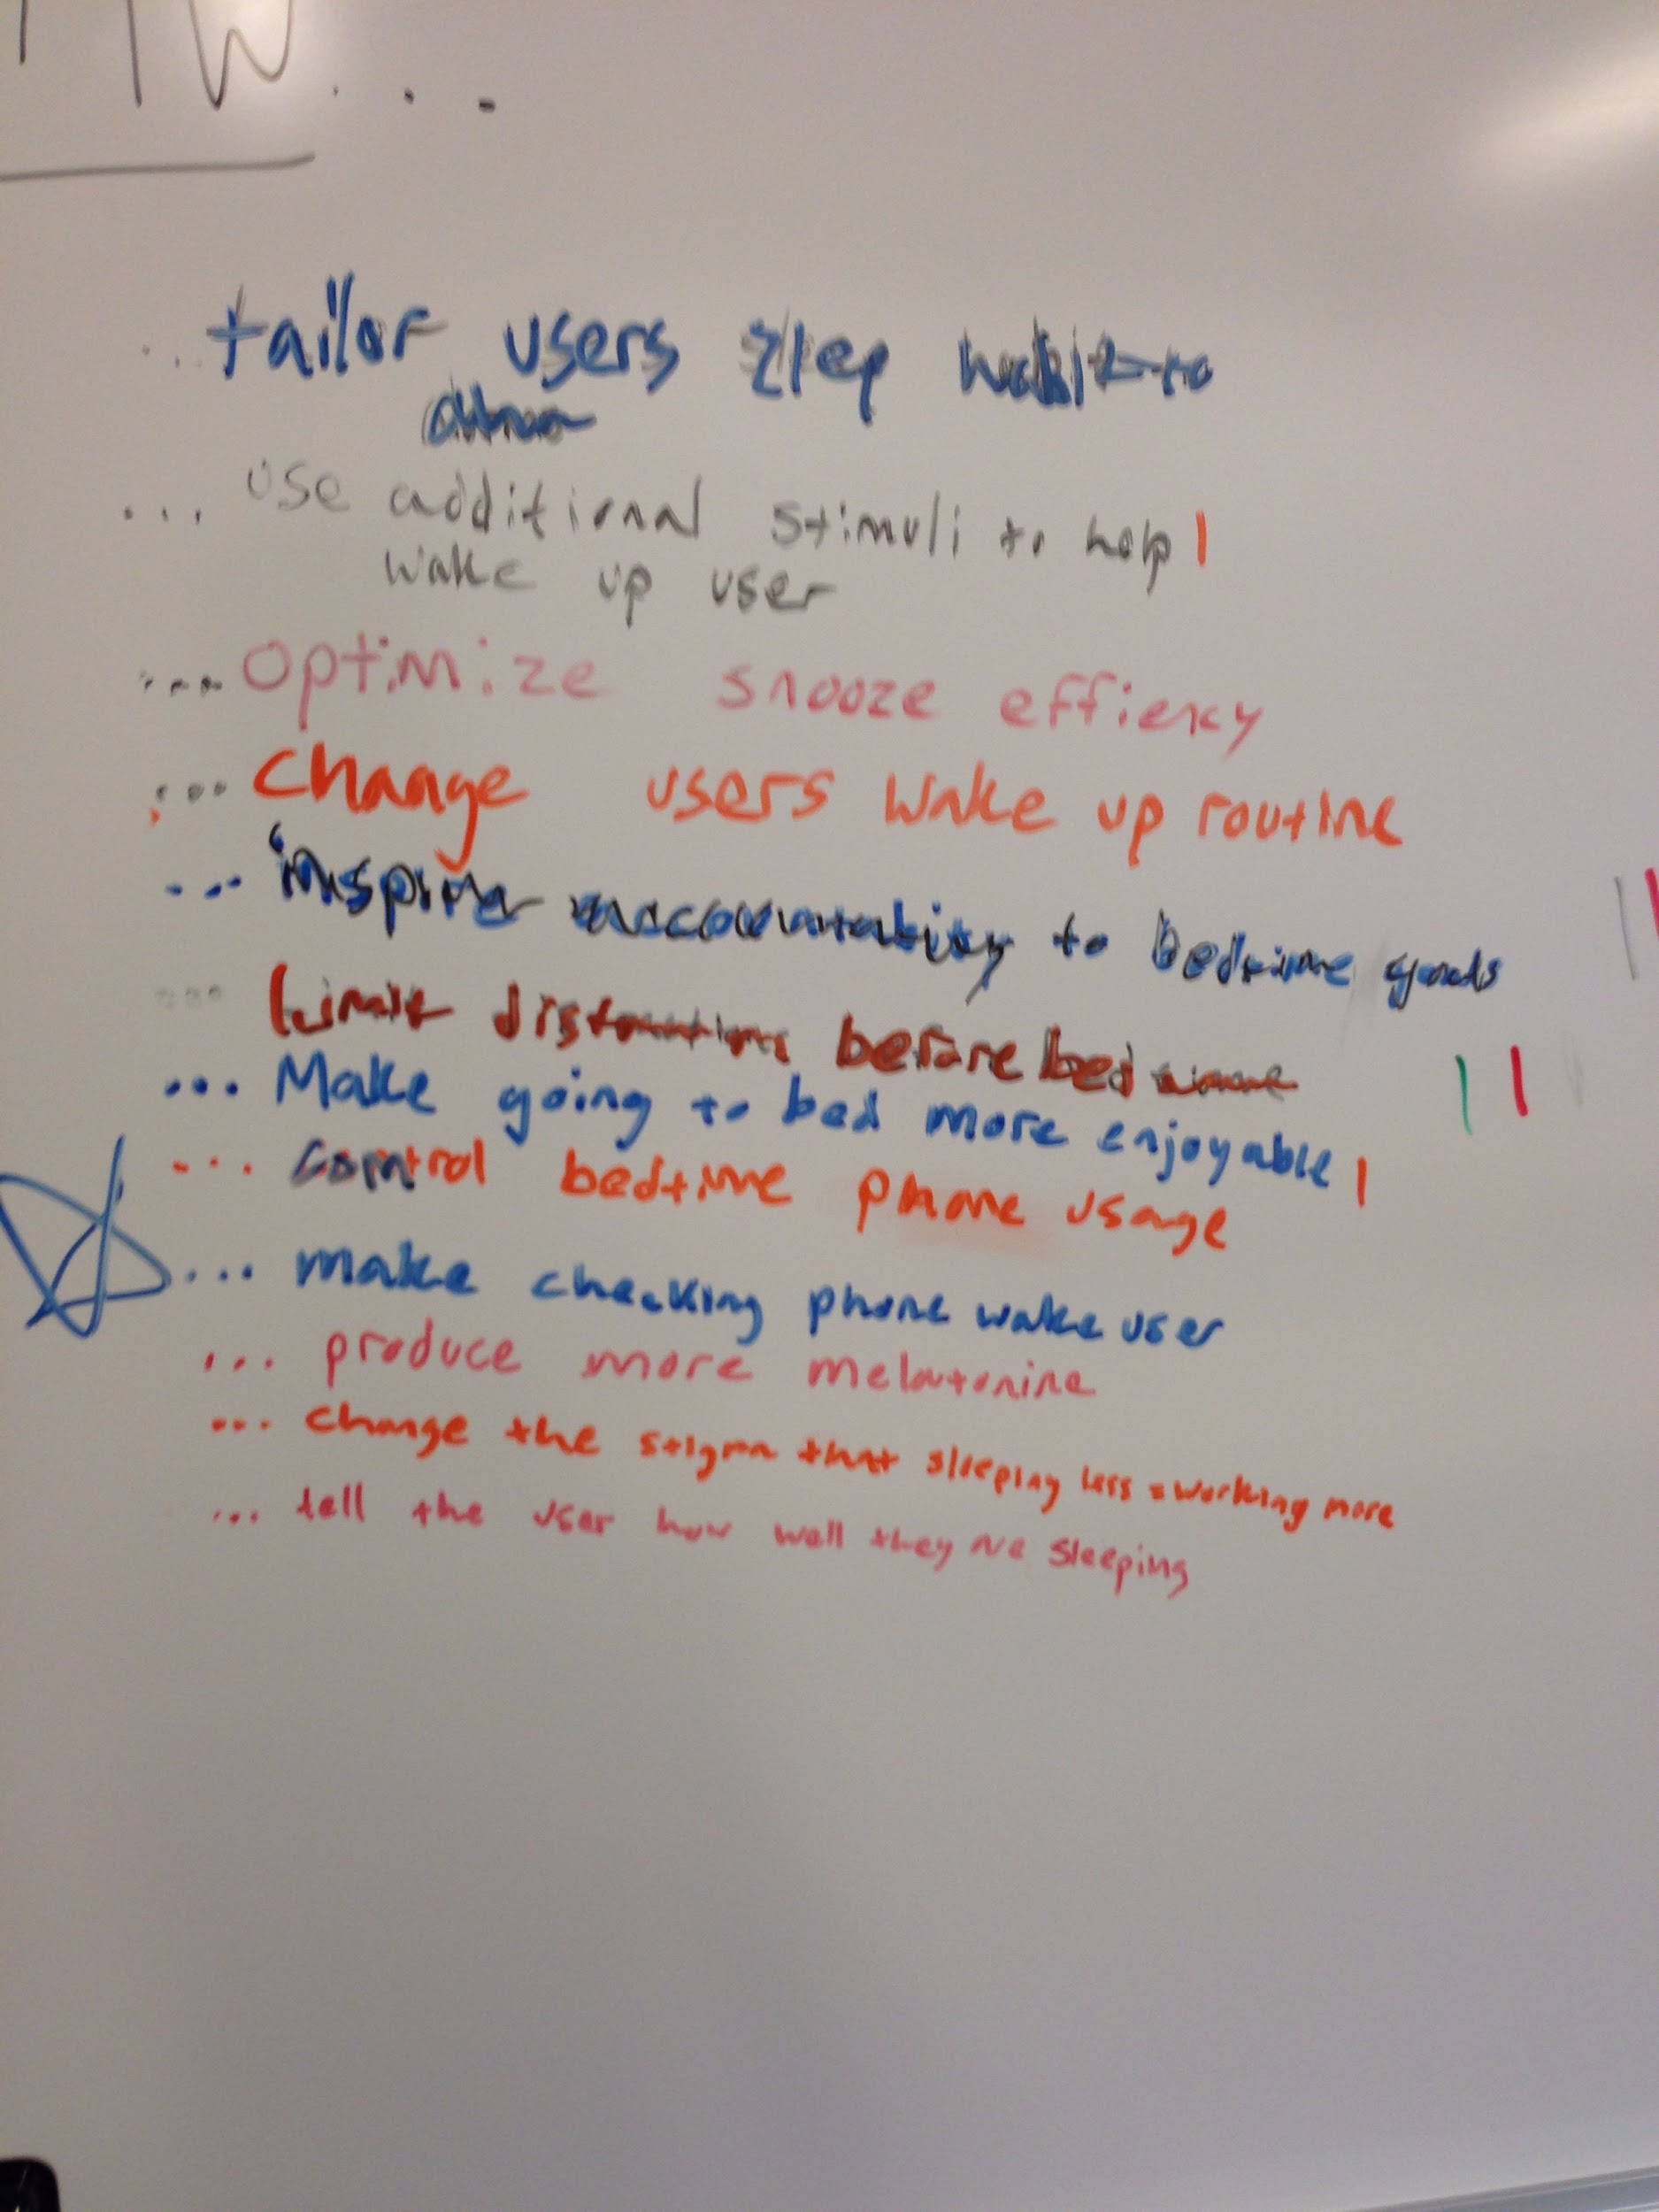 W...
...tailor users slep habit to
... use additional stimuli to help
wake up user
... optimize snooze effiency
... change users wake up routine
... inspire accountability to bedtime goals
... Limit distractions before bed
... Make going to bed more enjoyable
... control bedtime phone usage
... make checking phone wake user
... produce more melatonine
... change the stigma that sleeping less = working more
... tell the user how well they are sleeping